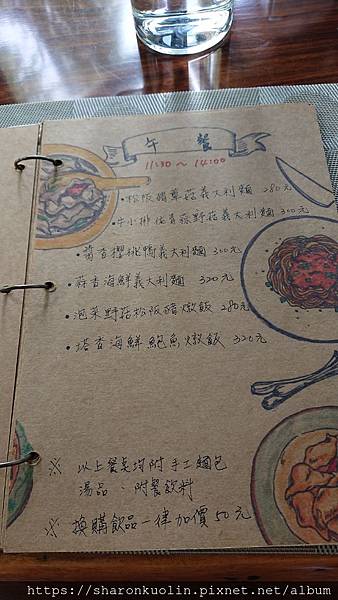 午 餐
11:30 ~ 14:00
・松阪豬蕈菇義大利麵 280元
・牛小排佐青蒜野菇義大利麵 300元
・醬香櫻桃鴨義大利麵 300元
・蒜香海鮮義大利麵 320元
・泡菜野菇松阪豬燉飯 280元
・塔香海鮮鮑魚燉飯 320元
※ 以上餐点均附 手工麵包
湯品 、附餐飲料
※ 換購飲品一律加價50元
https://sharonkuolin.pixnet.net/album